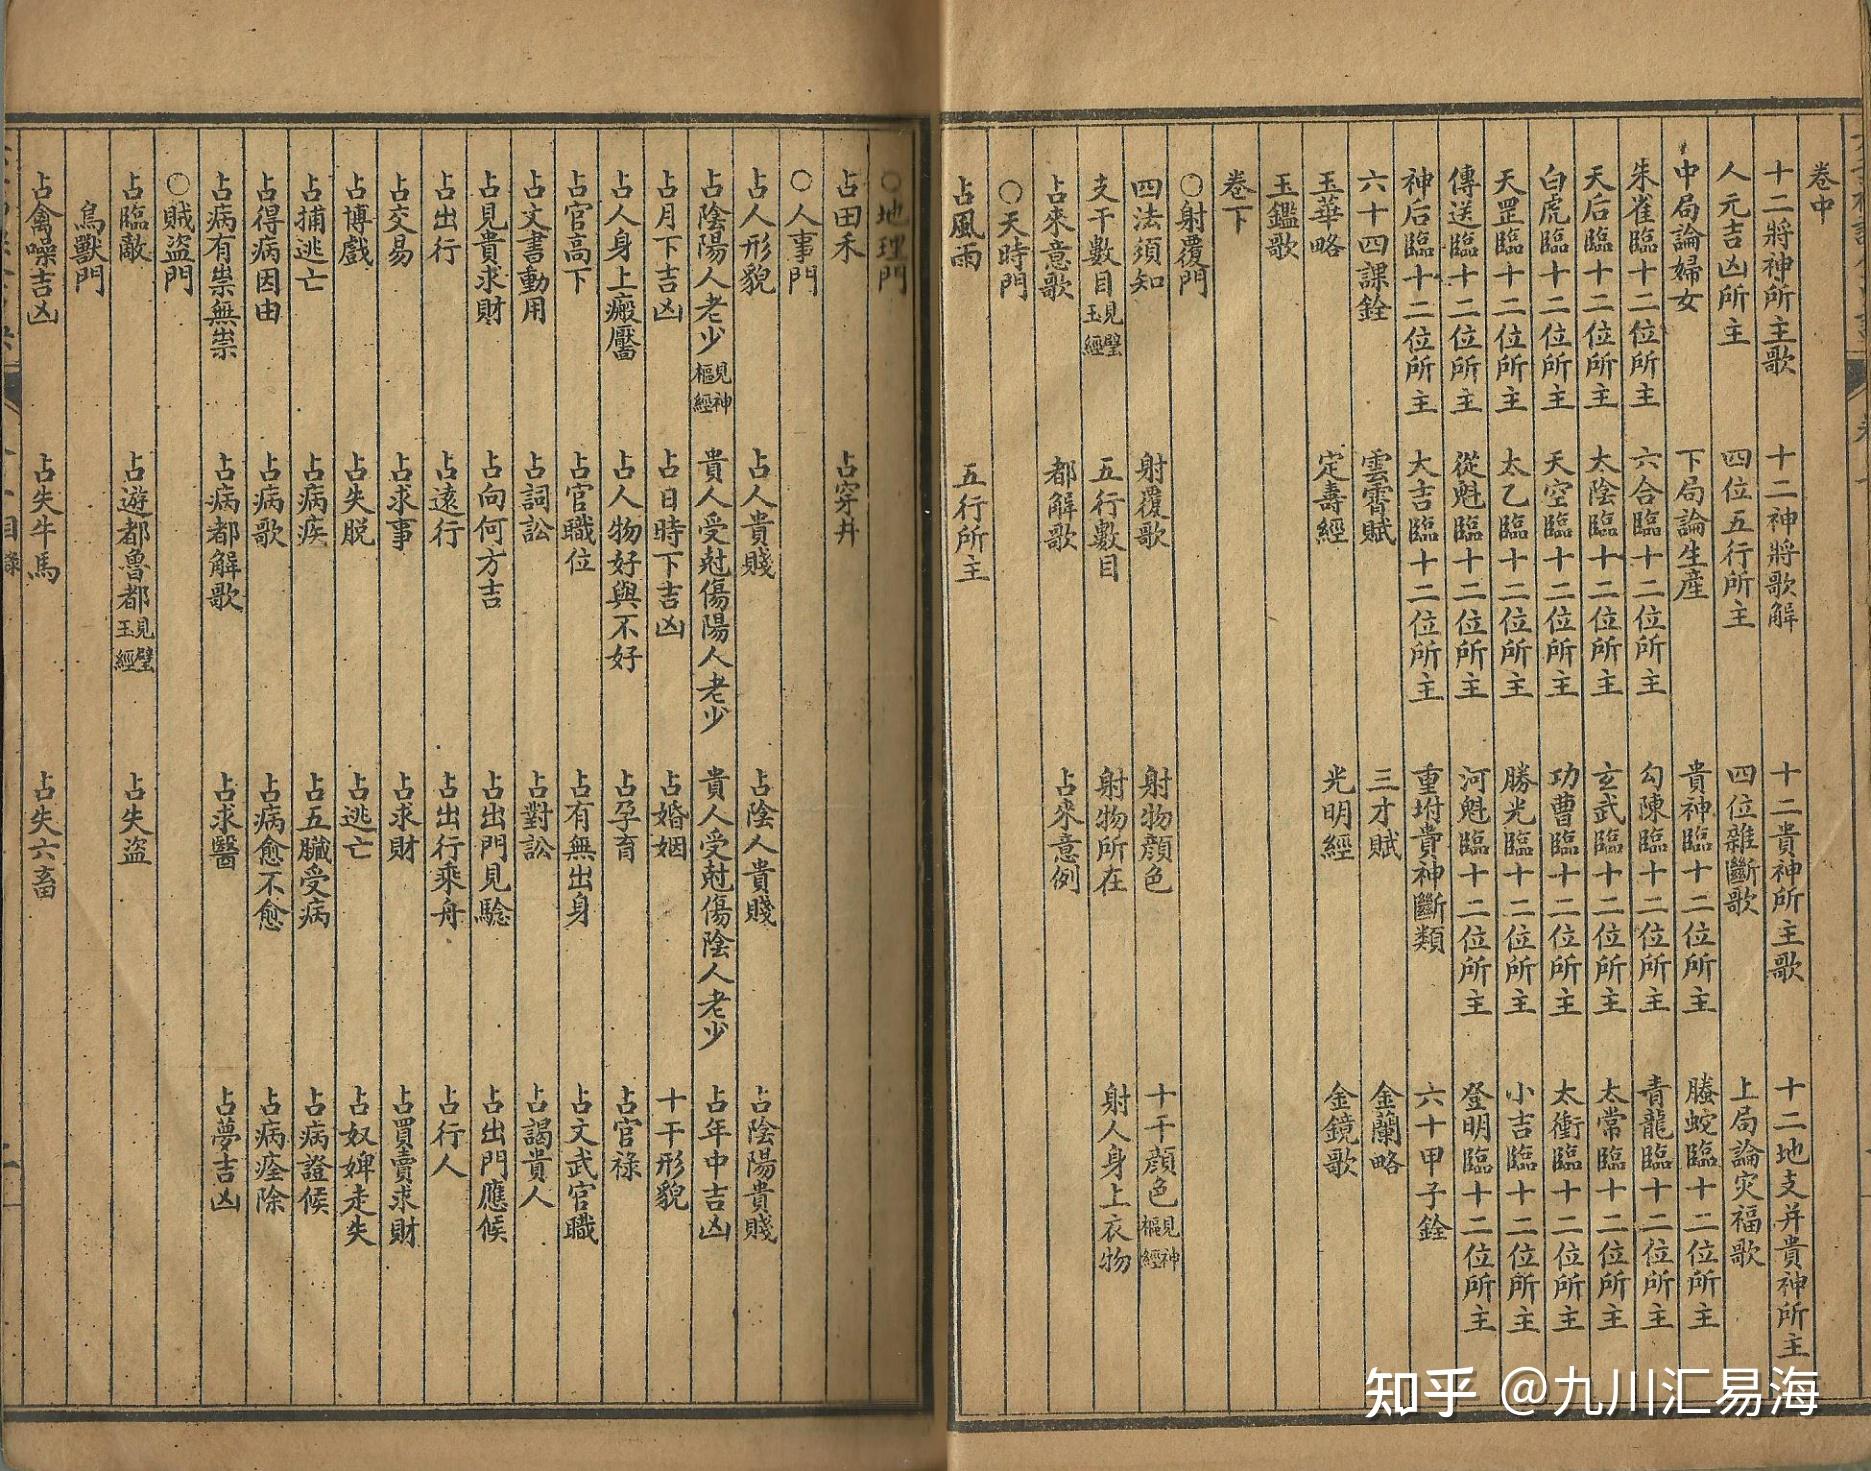 卷中
十二將神所主歌 十二神將歌解 十二貴神所主歌 十二地支并貴神所主
人元吉凶所主 四位五行所主 四位雜斷歌 上局論灾福歌
中局論婦女 下局論生産 貴神臨十二位所主 螣蛇臨十二位所主
朱雀臨十二位所主 六合臨十二位所主 勾陳臨十二位所主 青龍臨十二位所主
天后臨十二位所主 太陰臨十二位所主 玄武臨十二位所主 太常臨十二位所主
白虎臨十二位所主 天空臨十二位所主 功曹臨十二位所主 太衝臨十二位所主
天罡臨十二位所主 太乙臨十二位所主 勝光臨十二位所主 小吉臨十二位所主
傳送臨十二位所主 從魁臨十二位所主 河魁臨十二位所主 登明臨十二位所主
神后臨十二位所主 大吉臨十二位所主 重坿貴神斷類 六十甲子銓
六十四課銓 雲霄賦 三才賦 金蘭略
玉華略 定壽經 光明經 金鏡歌
玉鑑歌
卷下
○射覆門
四法須知 射覆歌 射物顔色 十干顔色 見神樞經
支干數目 見璧玉經 五行數目 射物所在 射人身上衣物
占來意歌 都解歌 占來意例
○天時門
占風雨 五行所主
○地理門
占田禾 占穿井
○人事門
占人形貌 占人貴賤 占陰人貴賤 占陰陽貴賤
占陰陽人老少 見神樞經 貴人受尅傷陽人老少 貴人受尅傷陰人老少 占年中吉凶
占月下吉凶 占日時下吉凶 占婚姻 十干形貌
占人身上瘢靨 占人物好與不好 占孕育 占官祿
占官高下 占官職位 占有無出身 占文武官職
占文書動用 占詞訟 占對訟 占謁貴人
占見貴求財 占向何方吉 占出門見騐 占出門應候
占出行 占遠行 占出行乘舟 占行人
占交易 占求事 占求財 占買賣求財
占博戲 占失脱 占逃亡 占奴婢走失
占捕逃亡 占病疾 占五臟受病 占病證候
占得病因由 占病歌 占病愈不愈 占病痊除
占病有祟無祟 占病都解歌 占求醫 占夢吉凶
○賊盜門
占臨敵 占遊都魯都 見璧玉經 占失盜
鳥獸門
占禽噪吉凶 占失牛馬 占失六畜
知乎 @九川汇易海